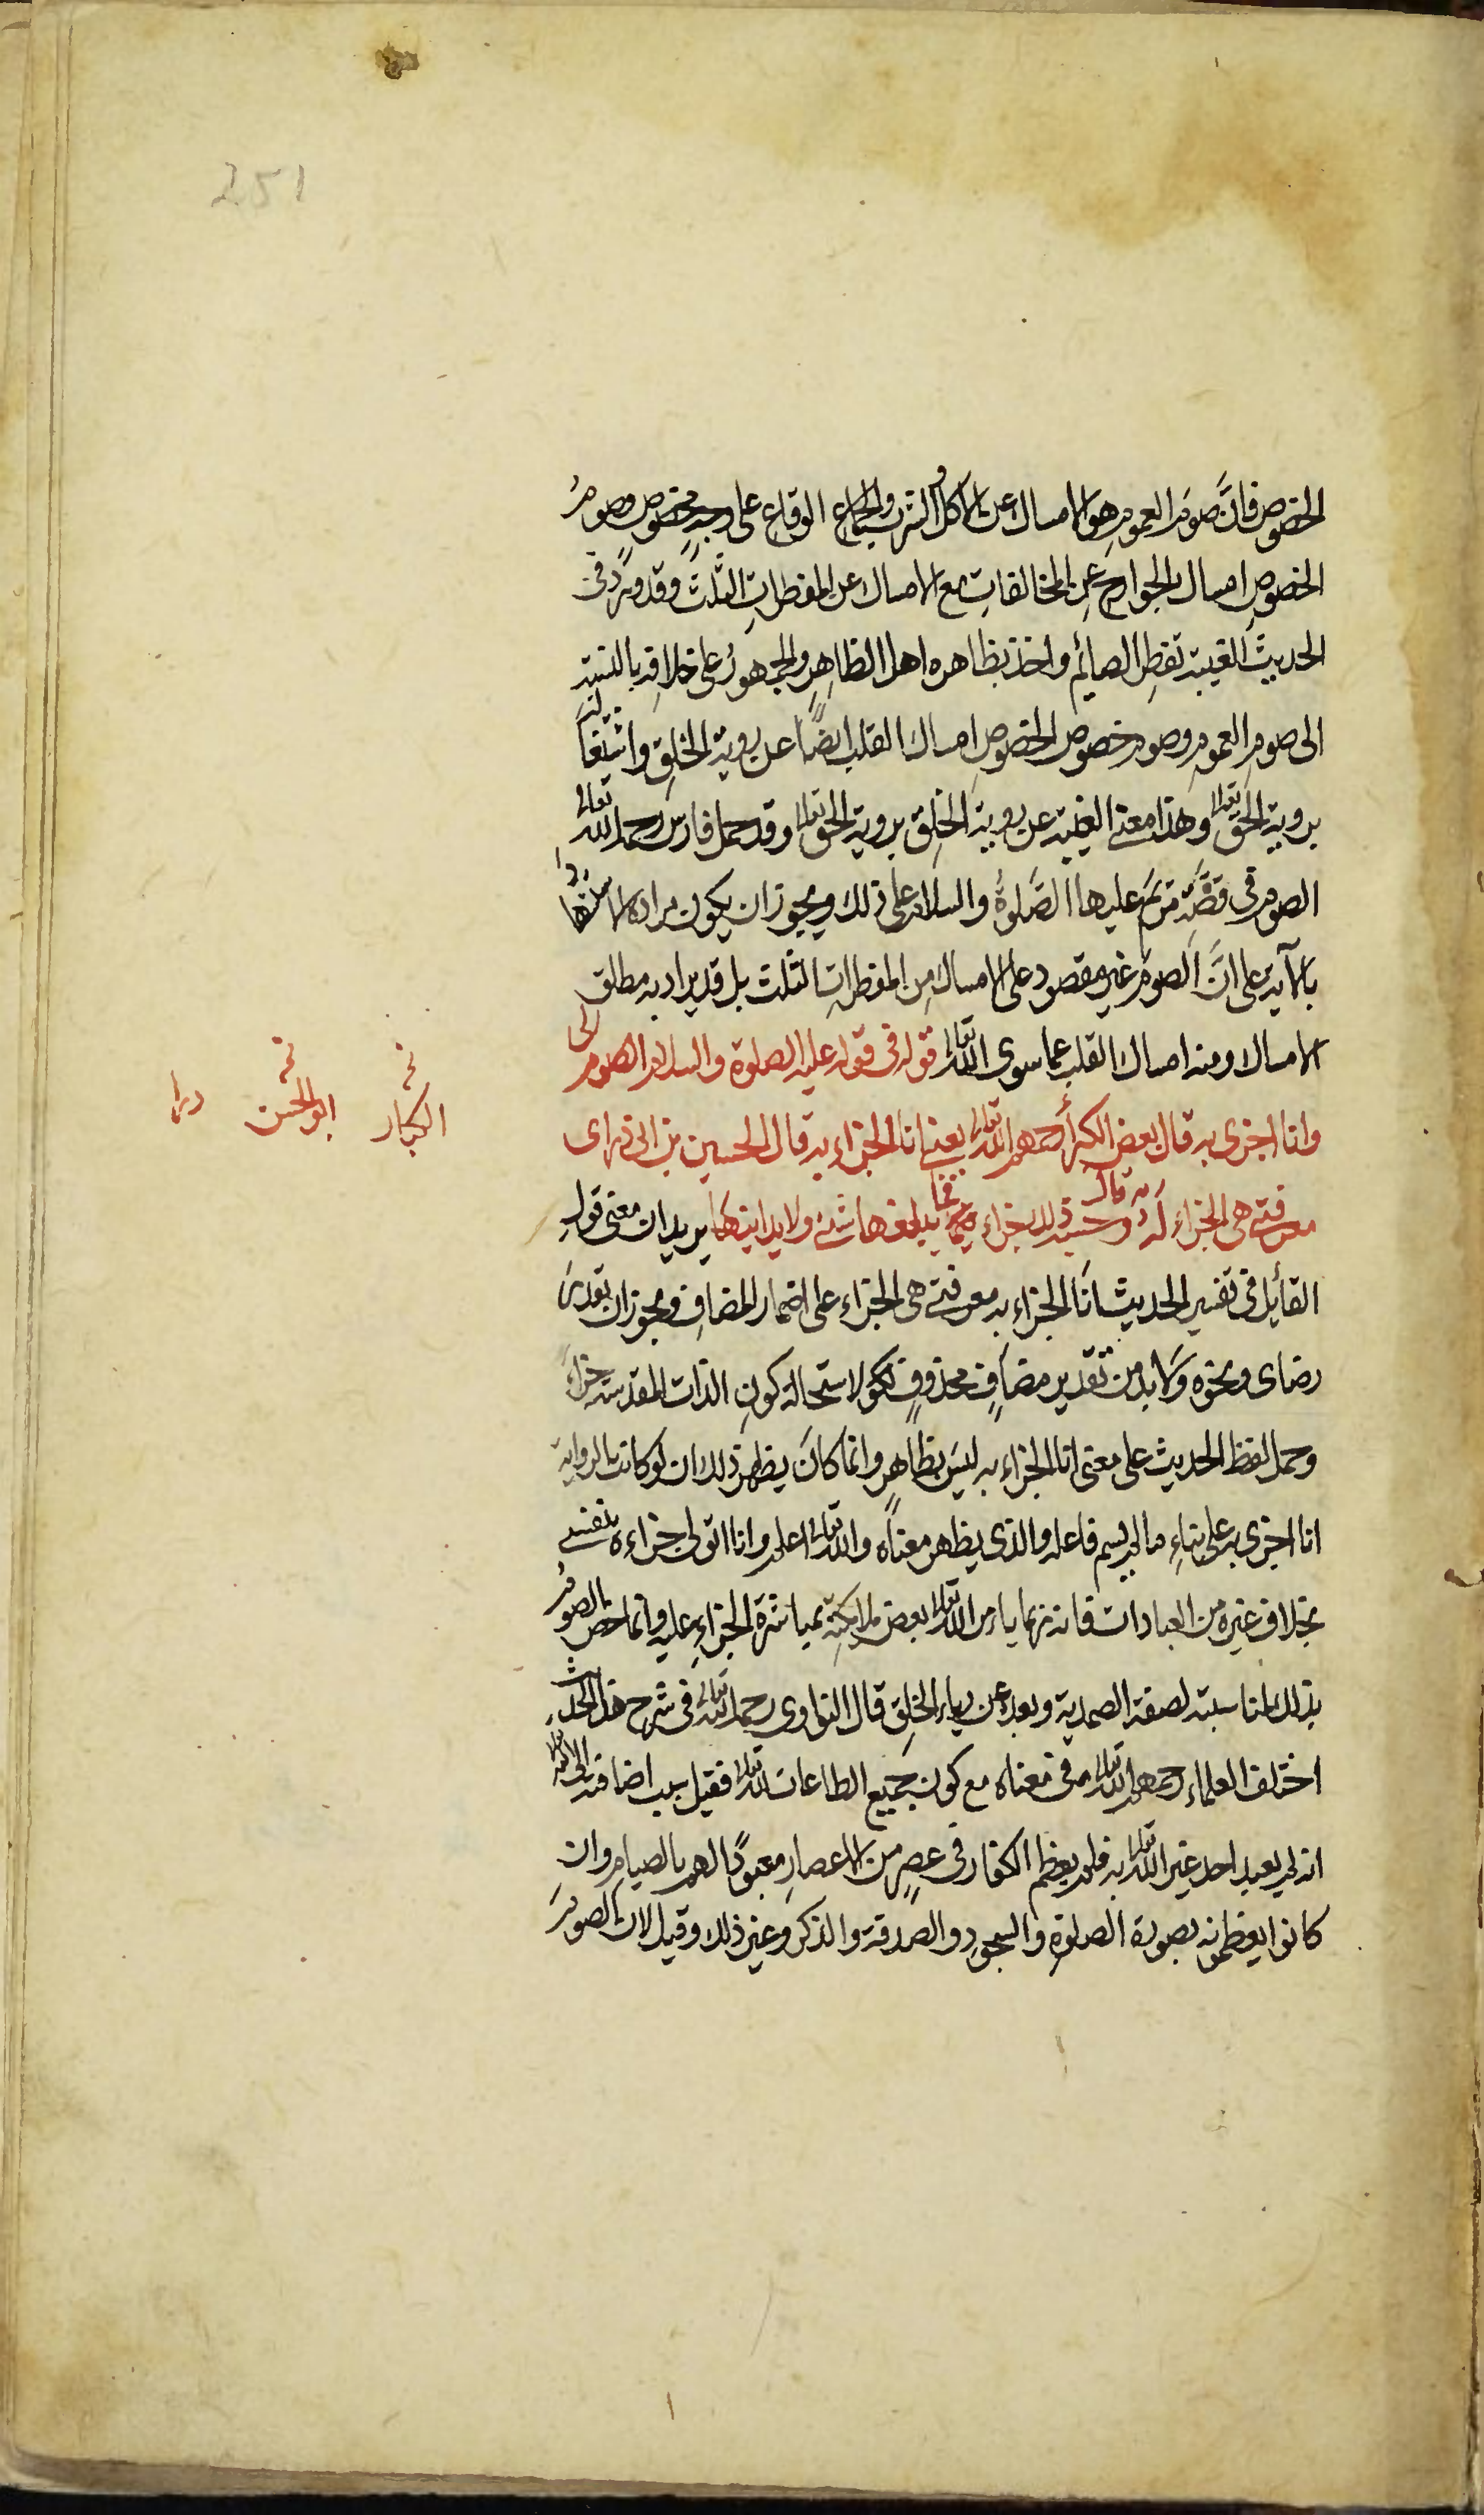 251
الخصوص فانَّ صَوم العموم هو الامساك عن الاكل و الشرب والجماع الوقاع على وجهٍ مخصوص وصومُ
الخصوصِ امساك الجوارح عن المخالفات مع الامساك عن المفطراتِ الثلث وقد ورد فى
الحديث الغيبة تفطر الصائم واخذ بظاهره اهل الظاهر والجمهورُ على خلافه بالنسبة
الى صوم العموم وصوم خصوص الخصوصِ امساك القلب ايضًا عن روية الخلق
بروية الحق تعالى وهذا معنى الغيبة عن روية الخلق بروية الحق تعالى وقد حمل فارس رحمه الله تعالى
الصوم فى قصّة مريَم عليها الصّلوةُ والسلام على ذلك ويجوز ان يكون مراده
بالآية على انَّ الصوم غير مقصود على الامساك من المفطرات الثلث بل قد يراد به مطلق
الامساك ومنه امساك القلب عما سوى الله تعالى قوله فى قوله عليه الصلوة والسلام الصوم لى
وانا اجزى به قال بعض الكبراء رحمهم الله تعالى يعنى انا الجزاء به قال الحسين بن ابى ذر اى
معرفتى هى الجزاء له به قال وحسبه ذلك جزاء فما يبلغها شئ ولا يدانيها يريد ان معنى قول
القائل فى تفسير الحديث انَا الجزاء به معرفتى هى الجزاء على اضمار المضافِ ويجوز ان يقدر
رضاى ونحوه وَلا بد من تقدير مضافٍ محذوفٍ لاستحالة كون الذات المقدسة جزاءً
وحمل لفظ الحديث على معنى انا الجزاء به ليسَ بظاهرٍ وانما كانَ يظهر ذلك ان لو كانت الرواية
انا اجزى به على بناءِ ما لم يسم فاعله والذى يظهر معناه والله تعالى اعلم وانا اتولى جزاءه بنفسى
بخلاف غيره من العبادات فانه ربما يامر الله تعالى بعض ملائكته بمباشرة الجزاءِ عليه وانما خص الصومُ
بذلك لمناسبته لصفة الصمدية وبعده عن رياء الخلق قال النواوى رحمه الله تعالى فى شرح هذا الحديث
اختلف العلماء رحمهم الله تعالى فى معناه مع كون جميع الطاعات لله تعالى فقيل سبب اضافته الى الله تعالى
انه لم يعبد احد غير الله تعالى به فلم يعظم الكفار فى عصرٍ من الاعصارِ معبودًا لهم بالصيام وان
كانوا يعظمونه بصورة الصلوةِ والسجودِ والصدقة والذكر وغير ذلك وقيل لان الصومَ
الكبار
ابو الحسن